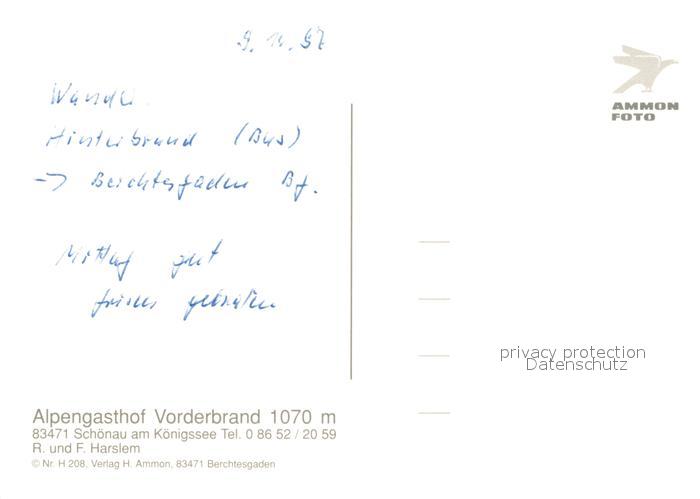 9. 11. 97
Hinterbrand (Bus)
-> Berchtesgaden Bf.
Mittag gut
gebraten
AMMON
FOTO
privacy protection
Datenschutz
Alpengasthof Vorderbrand 1070 m
83471 Schönau am Königssee Tel. 0 86 52 / 20 59
R. und F. Harslem
© Nr. H 208, Verlag H. Ammon, 83471 Berchtesgaden